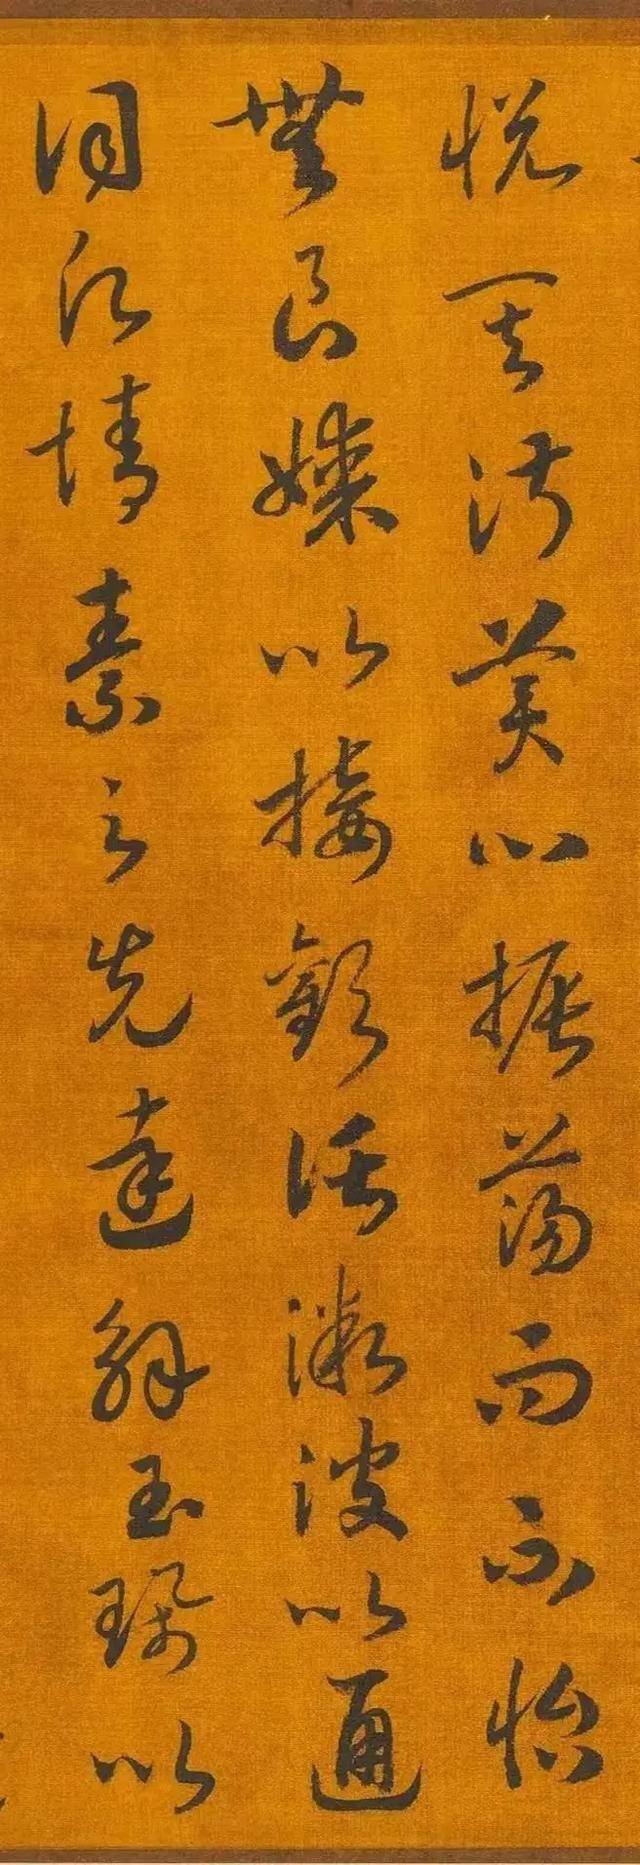 悦其淑美心振蕩而不怡
無良媒以接歡託微波以通
詞情素之先達解玉珮以